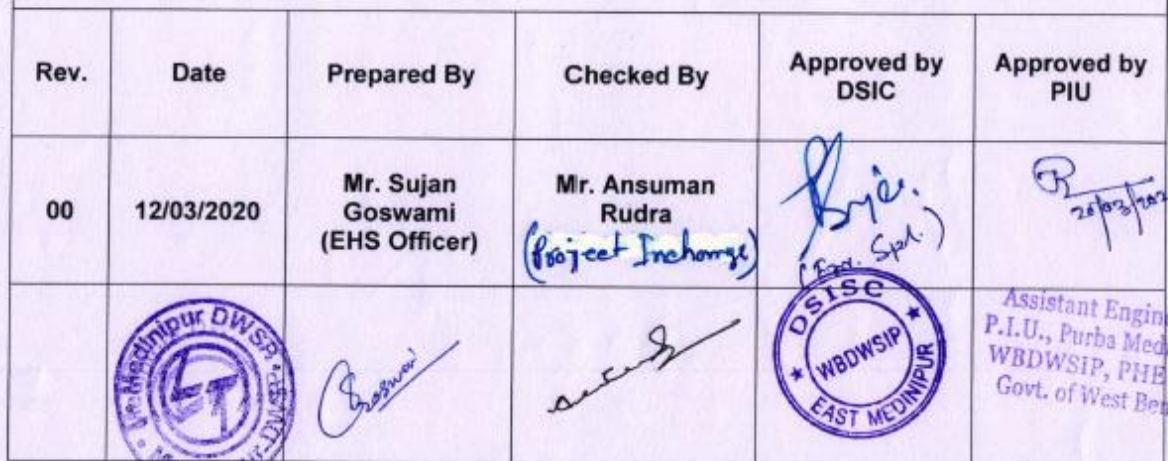 Rev.
Date
Prepared By
Checked By
Approved by
DSIC
Approved by
PIU
00
12/03/2020
Mr. Sujan
Goswami
(EHS Officer)
Mr. Ansuman
Rudra
(Project Incharge)
Spl.)
20/03/202
Medinipur DWSP
Goswami
DSISC
WBDWSIP
EAST MEDINIPUR
Assistant Engin
P.I.U., Purba Med
WBDWSIP, PHE
Govt. of West Ben